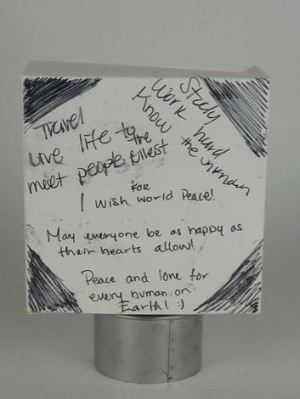 Travel
Live life to the
fullest
meet people
Study
Work hard
Know
the unknown
I wish FOR world Peace!
May everyone be as happy as
their hearts allow!
Peace and love for
every human on
Earth! :)